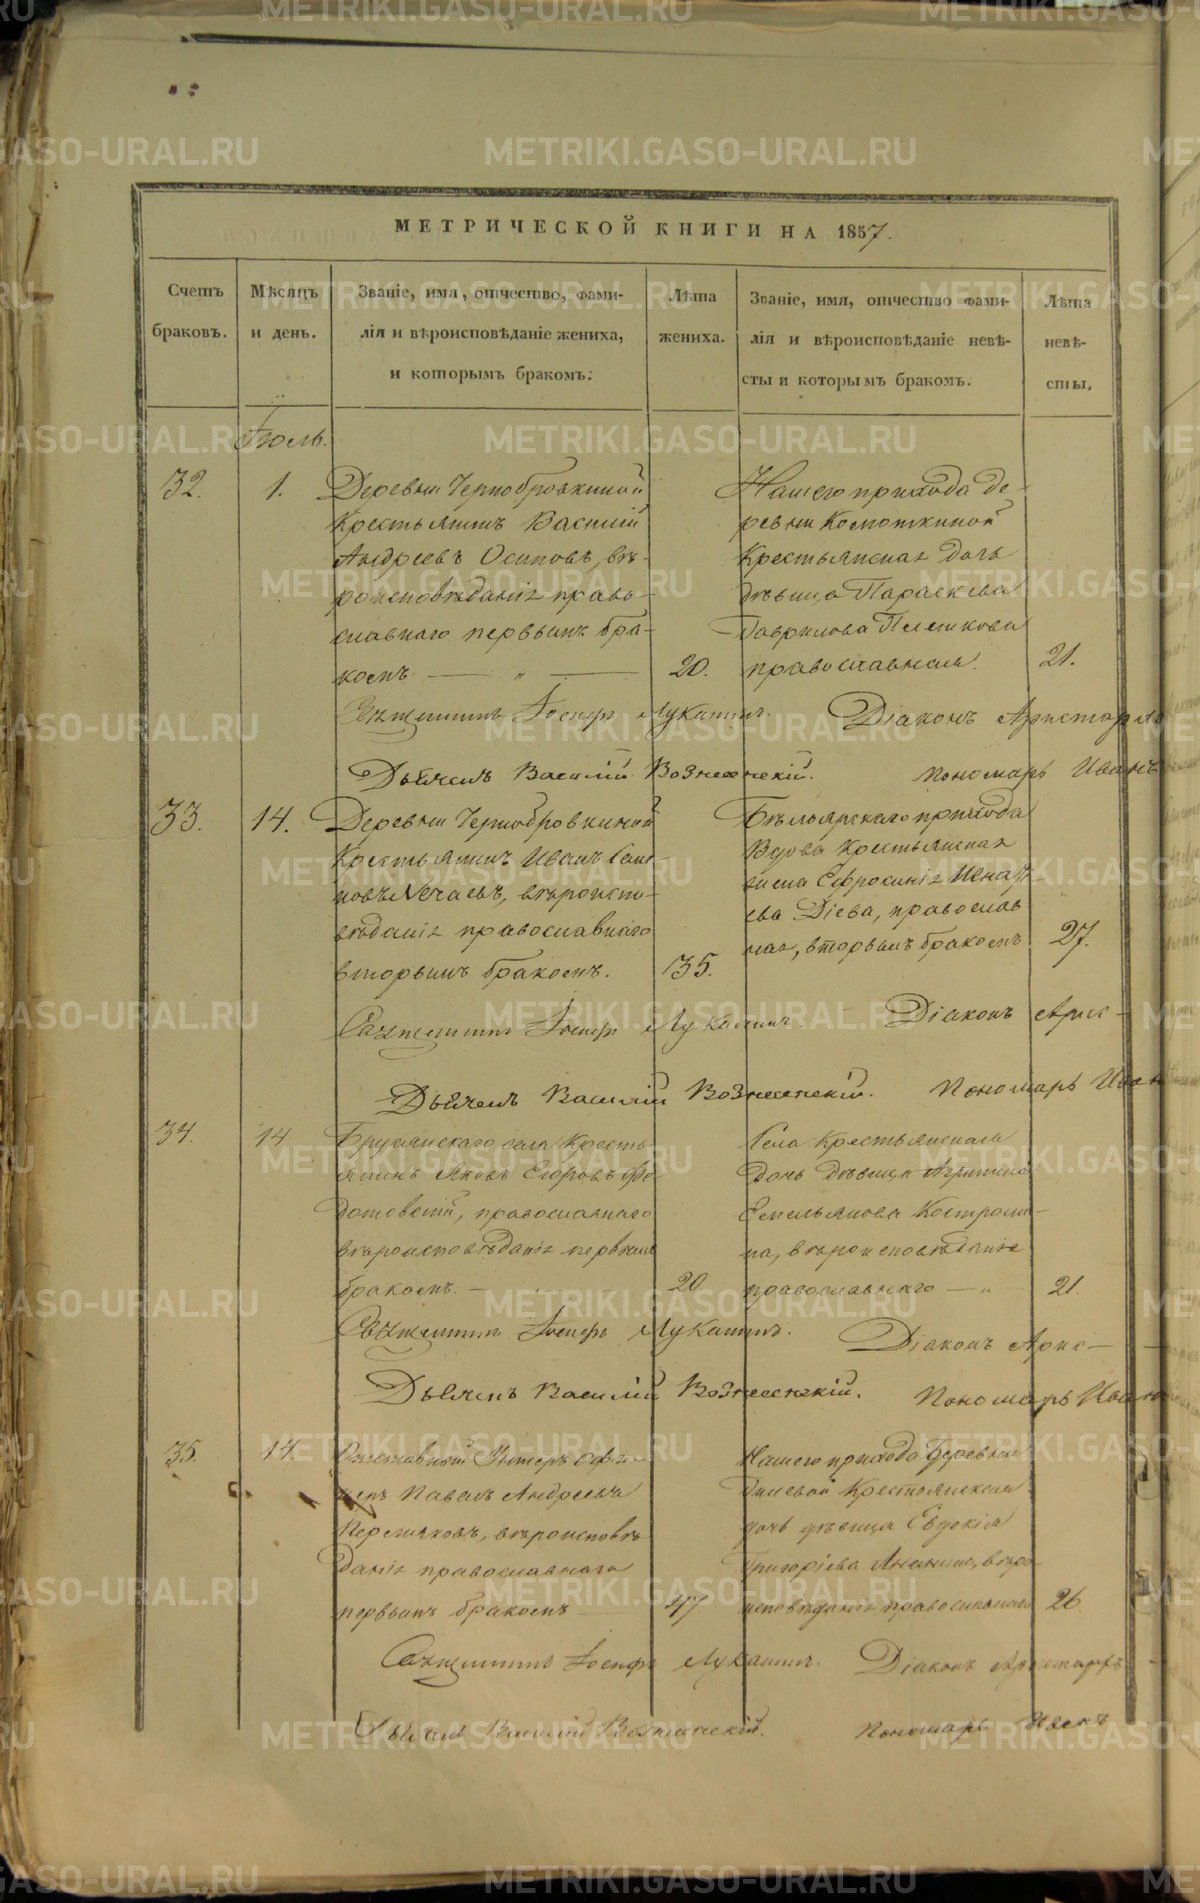 МЕТРИЧЕСКОЙ КНИГИ НА 1857.
Счетъ браковъ.
Мѣсяцъ и день.
Званіе, имя, отчество, фами-
лія и вѣроисповѣданіе жениха,
и которымъ бракомъ:
Лѣта жениха.
Званіе, имя, отчество фами-
лія и вѣроисповѣданіе невѣ-
сты и которымъ бракомъ.
Лѣта невѣ-
сты.
Іюль.
32. 1.
Деревни Чернобровкиной
Крестьянинъ Василій
Андреевъ Осиповъ, вѣ-
роисповѣданія право-
славнаго первымъ бра-
комъ — „ — 20.
Нашего прихода де-
ревни
Крестьянская дочь
дѣвица Параскева
Гаврилова Пешкова
православная. 21.
Священникъ Іосифъ Лукашинъ. Діаконъ
Дьячекъ Василій Вознесенскій. Пономарь Иванъ
33. 14.
Деревни Чернобровкиной
Крестьянинъ Иванъ Семе-
новъ Нечаевъ, вѣроиспо-
вѣданія православнаго
вторымъ бракомъ. 35.
Бѣлоярскаго прихода
Вдова Крестьянская
жена Ефросинія Игнать-
ева Діева, православ
ная, вторымъ бракомъ 27.
Священникъ Іосифъ Лукашинъ. Діаконъ Арис-
Дьячекъ Василій Вознесенскій. Пономарь Иван
34. 14
Брусянскаго села Кресть-
янинъ Яковъ Егоровъ Фе-
дотовскій, православнаго
вѣроисповѣданія первымъ
бракомъ. — 20
Села Крестьянская
Дочь дѣвица Агрипина
Емельянова Костроми-
на, вѣроисповѣданія
православнаго — „ 21.
Священникъ Іосифъ Лукашинъ. Діаконъ Арис—
Дьячекъ Василій Вознесенскій. Пономарь Иванъ
35. 14.
Отставной Унтеръ офи-
церъ Павелъ Андреевъ
Пермяковъ, вѣроисповѣ
данія православнаго
первымъ бракомъ — 47
Нашего прихода Деревни
Крестьянская
дочь дѣвица Евдокія
Григорієва вѣро-
исповѣданія православная 26
Священникъ Іосифъ Лукашинъ. Діаконъ Аристархъ
Дьячекъ Василій Вознесенскій. Пономарь Иванъ
METRIKI.GASO-URAL.RU